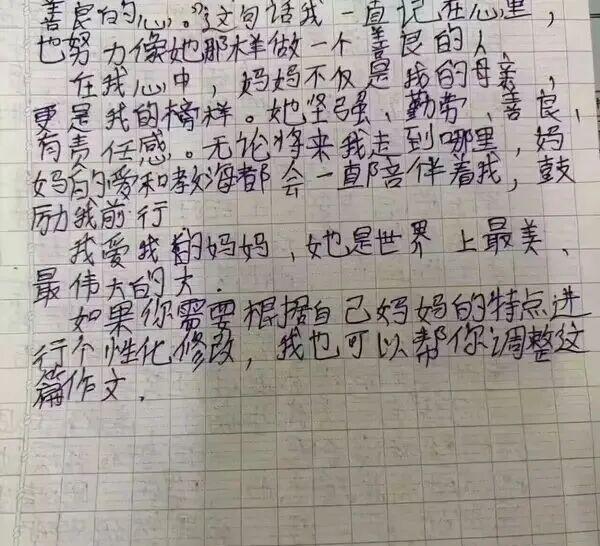 善良的心。”这句话我一直记在心里，
也努力像她那样做一个善良的人。
在我心中，妈妈不仅是我的母亲，
更是我的榜样。她坚强、勤劳、善良、
有责任感。无论将来我走到哪里，妈
妈的爱和教海都会一直陪伴着我，鼓
励我前行
我爱我的妈妈，她是世界上最美、
最伟大的大.
如果你需要根据自己妈妈的特点进
行个性化修改，我也可以帮你调整这
篇作文.